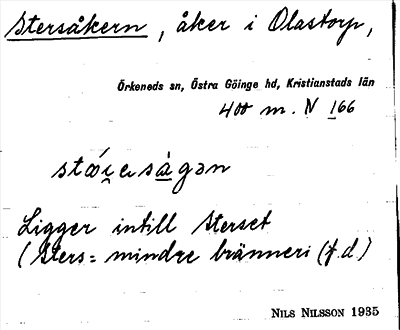 Stersåkern, åker i Olastorp,
Örkeneds sn, Östra Göinge hd, Kristianstads län
400 m. N 166
Ligger intill Sterset
(Sters = mindre bränneri (f.d)
NILS NILSSON 1935